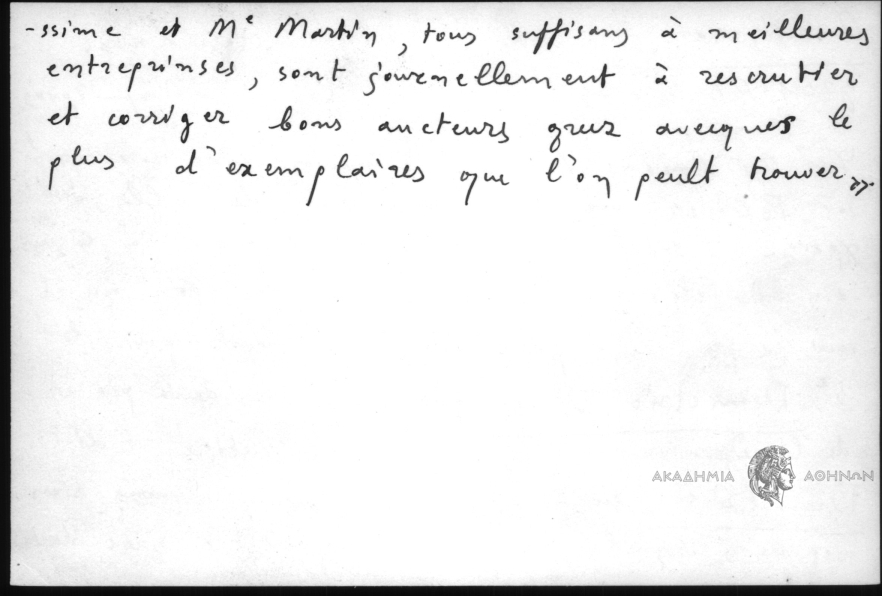 -ssime et Mᵉ Martin, tous suffisans à meilleures
entreprinses, sont journellement à rescrutier
et corriger bons aucteurs grecz avecques le
plus d'exemplaires que l'on peult trouver »
ΑΚΑΔΗΜΙΑ ΑΘΗΝΩΝ